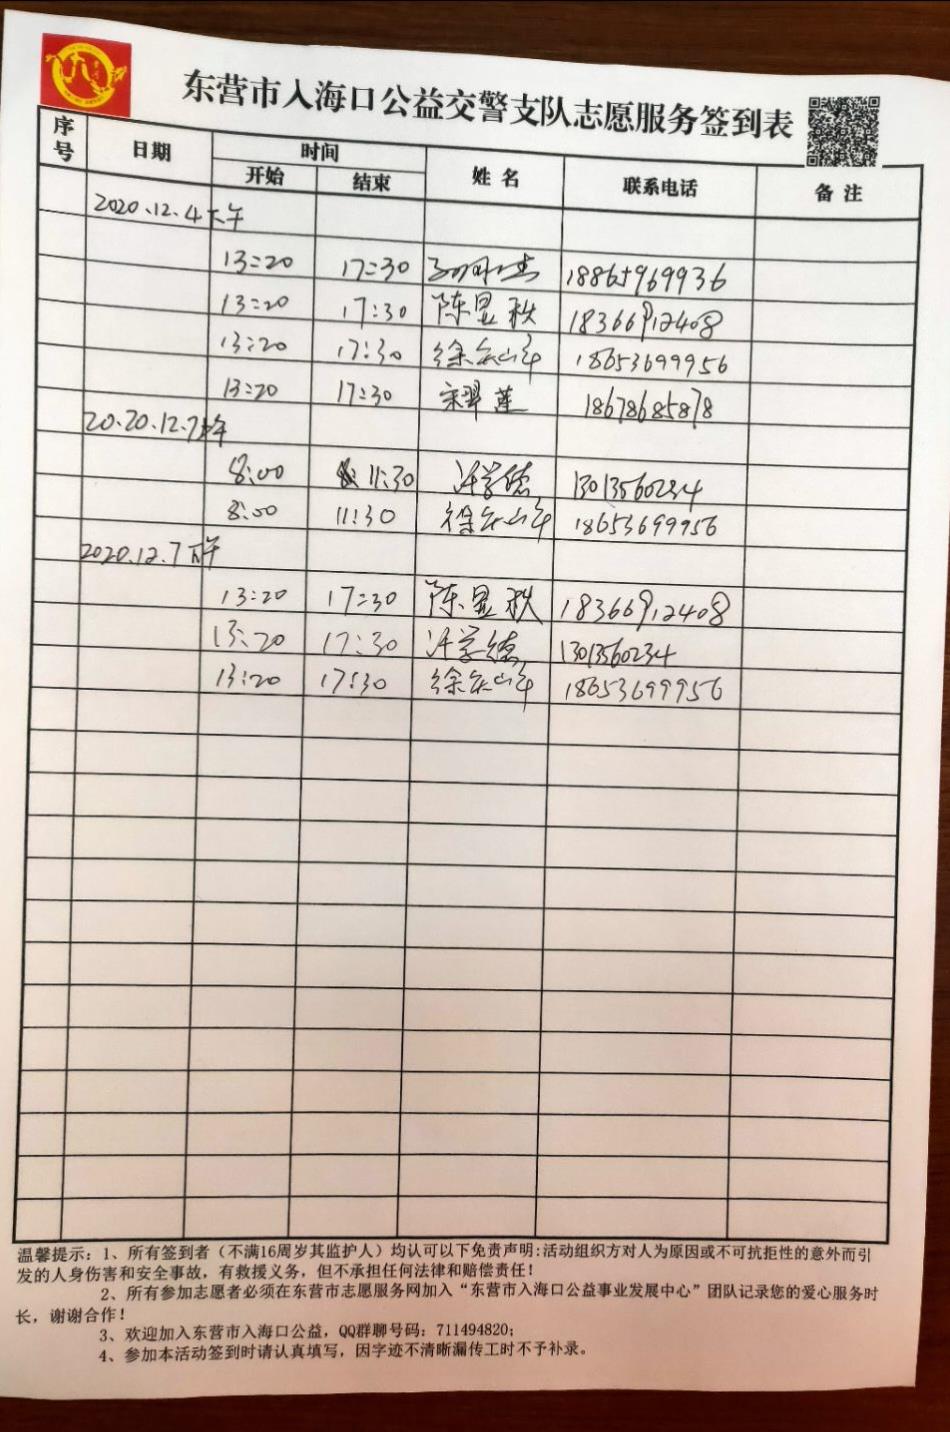 东营市入海口公益交警支队志愿服务签到表
序号 日期 时间 开始 结束 姓名 联系电话 备注
2020.12.4下午
13:20 17:30 18865969936
13:20 17:30 陈显秩 18366912408
13:20 17:30 徐庆山 18653699956
13:20 17:30 宋翠莲 18678685878
2020.12.7上午
8:00 11:30 许学德 13013560234
8:00 11:30 徐庆山 18653699956
2020.12.7下午
13:20 17:30 陈显秩 18366912408
13:20 17:30 许学德 13013560234
13:20 17:30 徐庆山 18653699956
温馨提示：1、所有签到者（不满16周岁其监护人）均认可以下免责声明：活动组织方对人为原因或不可抗拒性的意外而引
发的人身伤害和安全事故，有救援义务，但不承担任何法律和赔偿责任！
2、所有参加志愿者必须在东营市志愿服务网加入“东营市入海口公益事业发展中心”团队记录您的爱心服务时
长，谢谢合作！
3、欢迎加入东营市入海口公益，QQ群聊号码：711494820；
4、参加本活动签到时请认真填写，因字迹不清晰漏传工时不予补录。